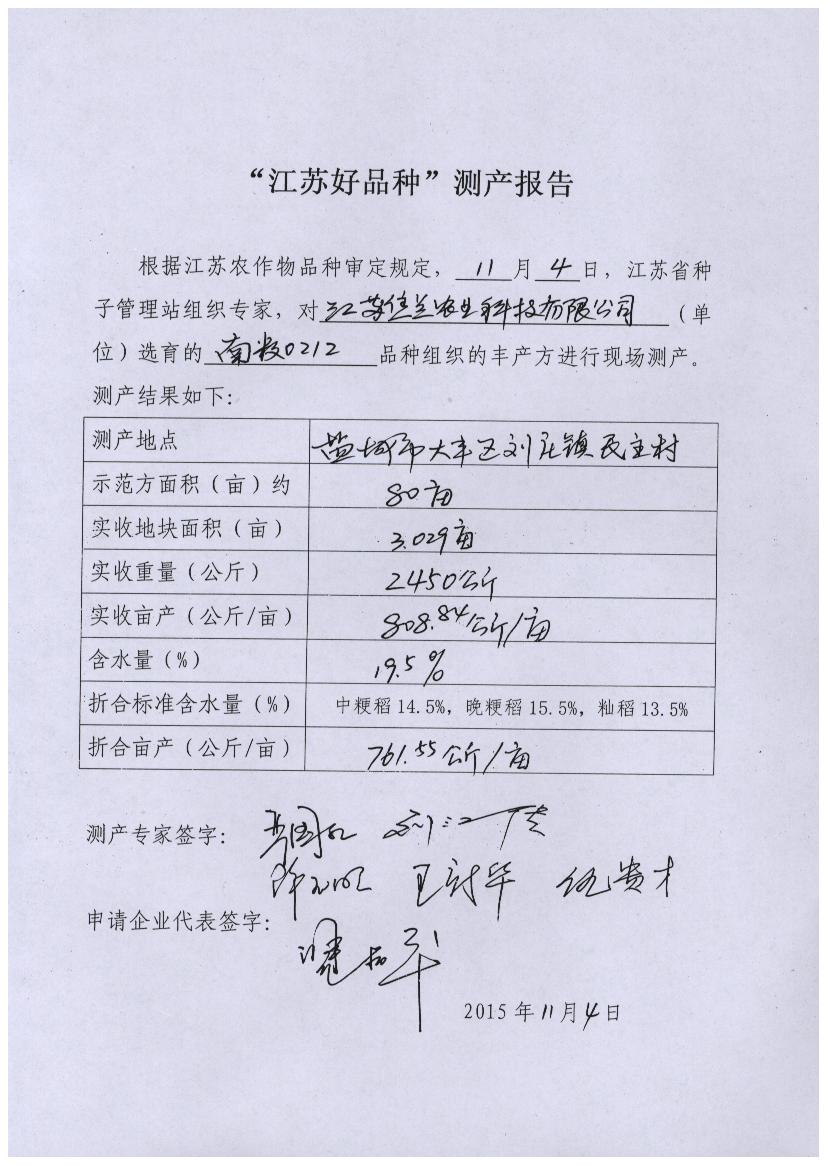 “江苏好品种”测产报告
根据江苏农作物品种审定规定，11月4日，江苏省种
子管理站组织专家，对江苏佳兰农业科技有限公司（单
位）选育的南粳0212品种组织的丰产方进行现场测产。
测产结果如下：
测产地点 盐城市大丰区刘庄镇民主村
示范方面积（亩）约 80亩
实收地块面积（亩） 3.029亩
实收重量（公斤） 2450公斤
实收亩产（公斤/亩） 808.84公斤/亩
含水量（%） 19.5%
折合标准含水量（%） 中粳稻14.5%，晚粳稻15.5%，籼稻13.5%
折合亩产（公斤/亩） 761.55公斤/亩
测产专家签字：
伍贵才
申请企业代表签字：
2015年11月4日